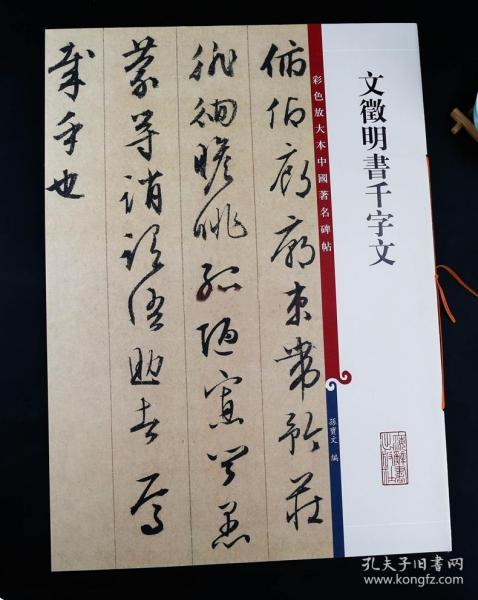 文徵明書千字文
彩色放大本中國著名碑帖
孫寶文 編
俯仰廊廟束帶矜莊
徘徊瞻眺孤陋寡聞愚
蒙等誚謂語助者焉
哉乎也
孔夫子旧书网
www.kongfz.com